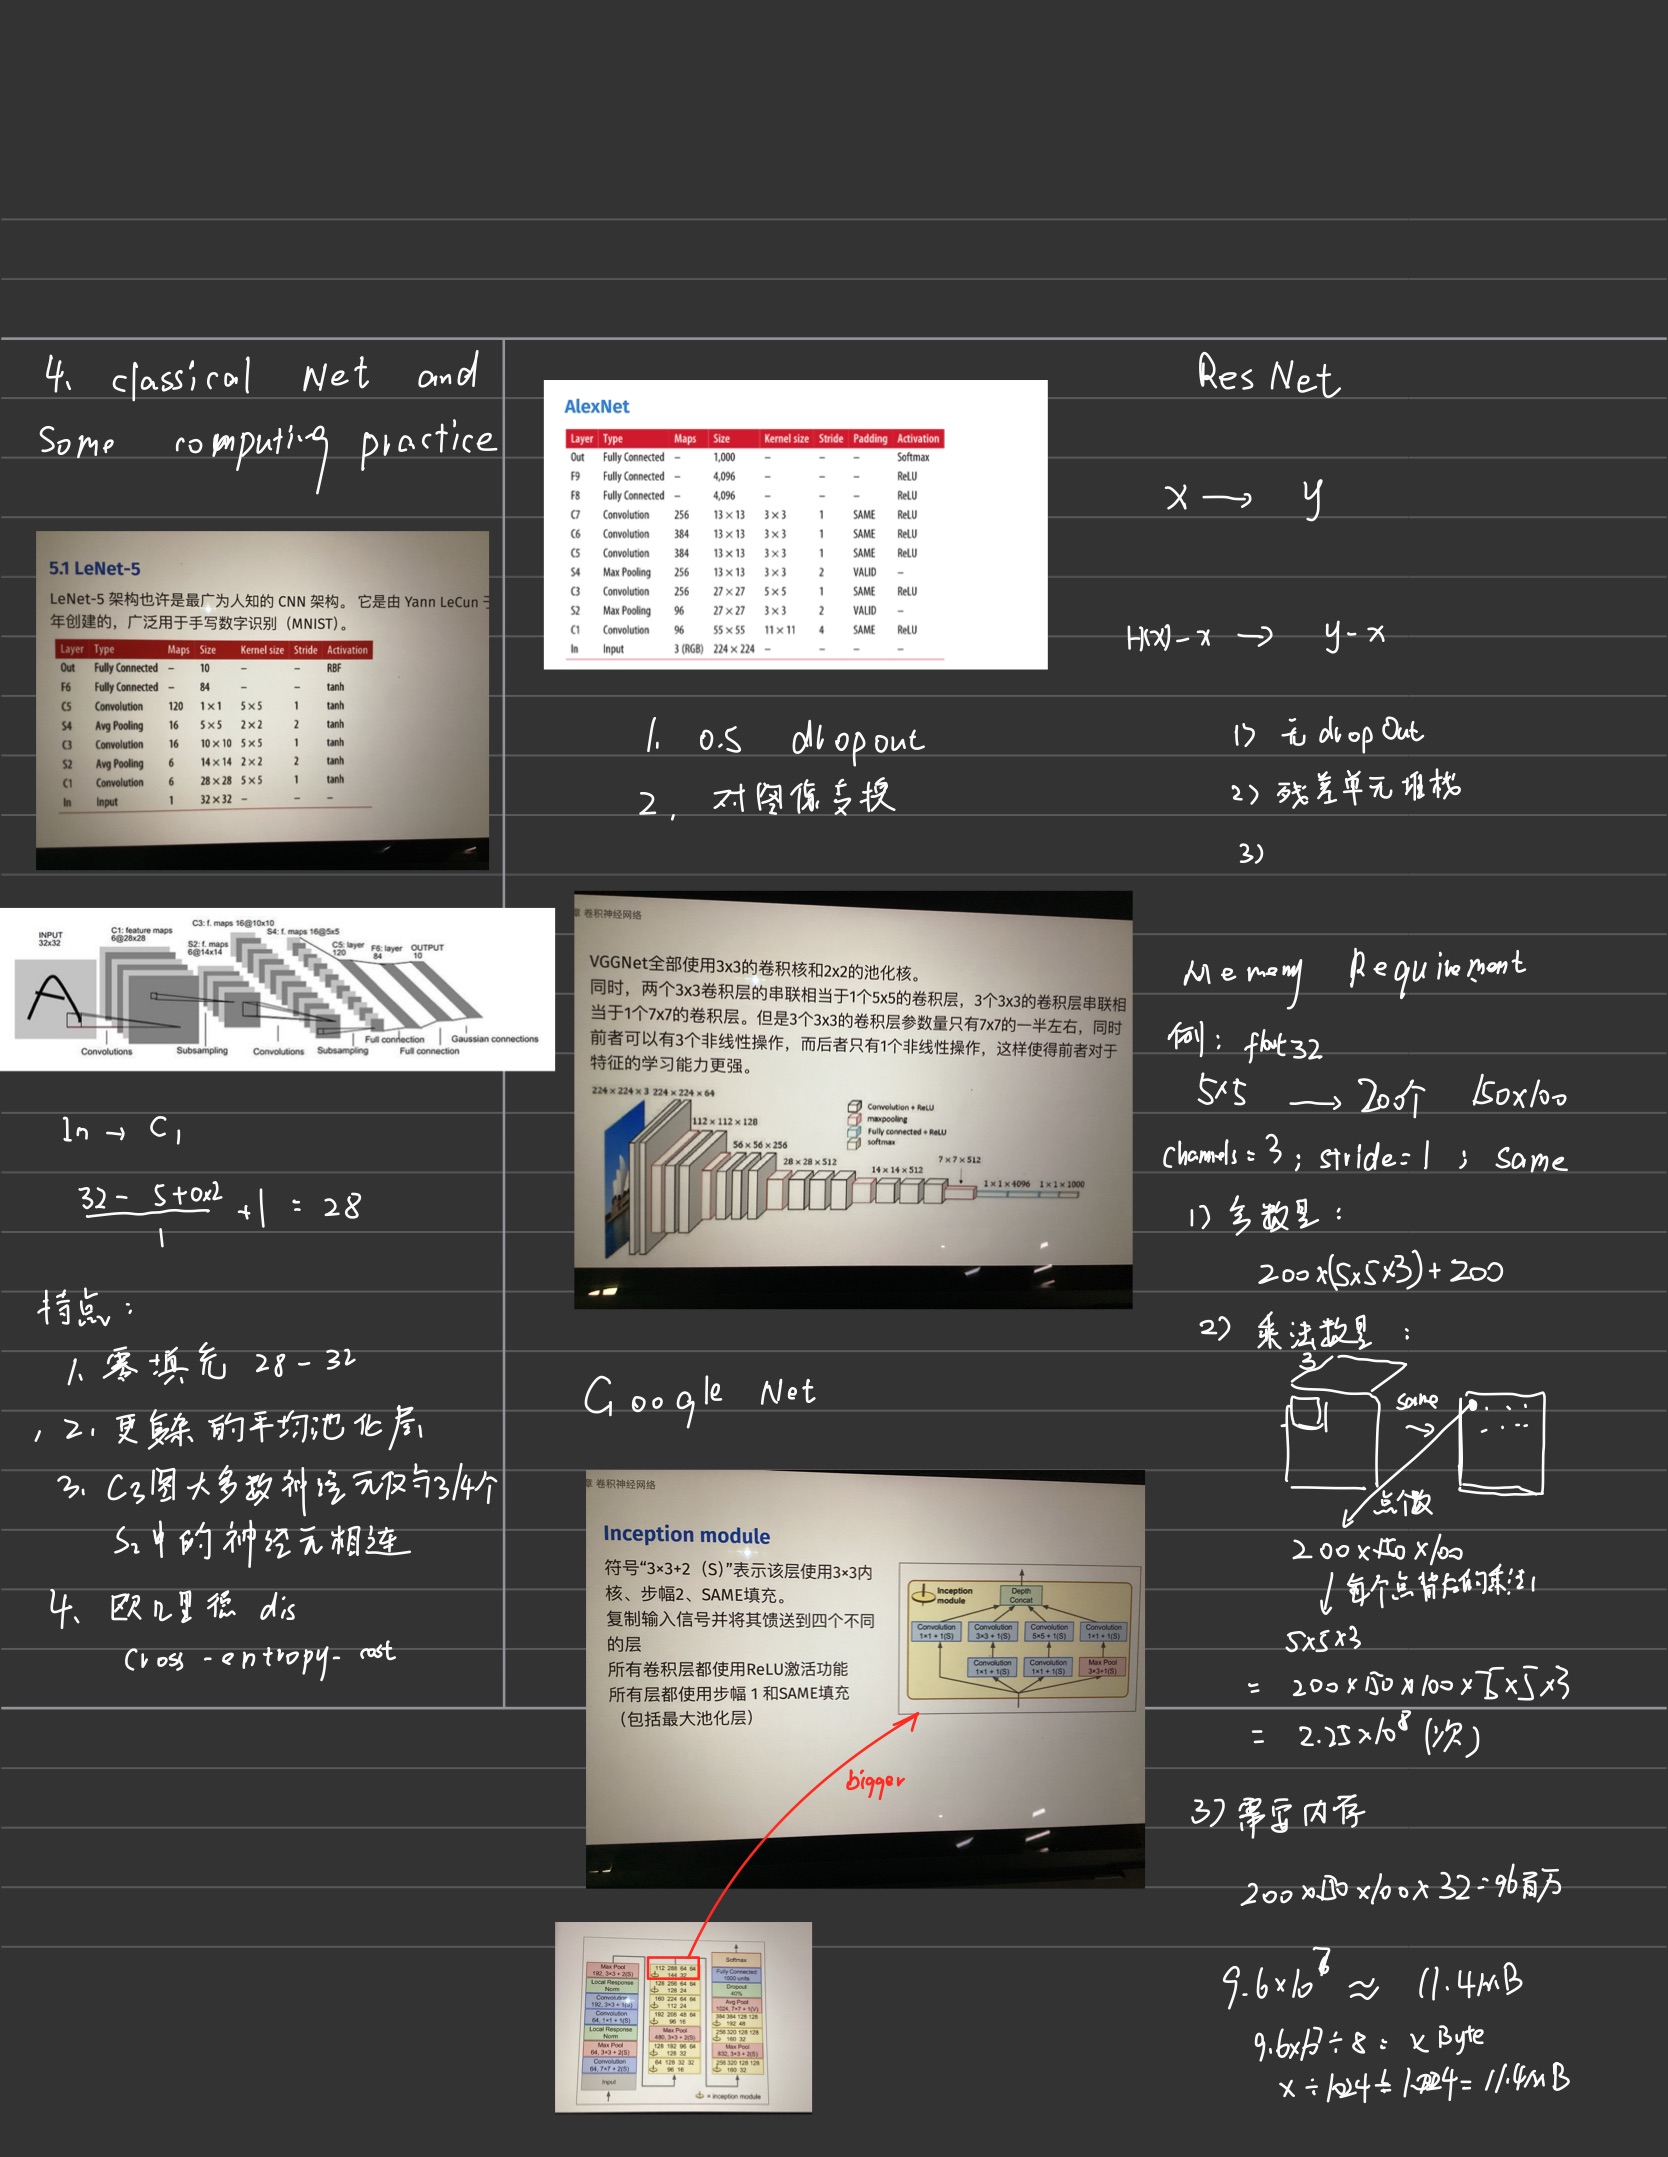 4. classical Net and
Some computing practice
5.1 LeNet-5
LeNet-5 架构也许是最广为人知的 CNN 架构。 它是由 Yann LeCun 于
年创建的，广泛用于手写数字识别（MNIST）。
Layer Type Maps Size Kernel size Stride Activation
Out Fully Connected – 10 – – RBF
F6 Fully Connected – 84 – – tanh
C5 Convolution 120 1×1 5×5 1 tanh
S4 Avg Pooling 16 5×5 2×2 2 tanh
C3 Convolution 16 10×10 5×5 1 tanh
S2 Avg Pooling 6 14×14 2×2 2 tanh
C1 Convolution 6 28×28 5×5 1 tanh
In Input 1 32×32 – – –
INPUT 32x32
C1: feature maps 6@28x28
S2: f. maps 6@14x14
C3: f. maps 16@10x10
S4: f. maps 16@5x5
C5: layer 120
F6: layer 84
OUTPUT 10
Convolutions Subsampling Convolutions Subsampling Full connection Full connection Gaussian connections
In → C1
32 - 5+0x2
1
+1 = 28
特点：
1. 零填充 28-32
2. 更复杂的平均池化层
3. C3图大多数神经元仅与3/4个
S2中的神经元相连
4. 欧几里德 dis
Cross-entropy-cost
AlexNet
Layer Type Maps Size Kernel size Stride Padding Activation
Out Fully Connected – 1,000 – – – Softmax
F9 Fully Connected – 4,096 – – – ReLU
F8 Fully Connected – 4,096 – – – ReLU
C7 Convolution 256 13×13 3×3 1 SAME ReLU
C6 Convolution 384 13×13 3×3 1 SAME ReLU
C5 Convolution 384 13×13 3×3 1 SAME ReLU
S4 Max Pooling 256 13×13 3×3 2 VALID –
C3 Convolution 256 27×27 5×5 1 SAME ReLU
S2 Max Pooling 96 27×27 3×3 2 VALID –
C1 Convolution 96 55×55 11×11 4 SAME ReLU
In Input 3 (RGB) 224×224 – – – –
1. 0.5 dropout
2. 对图像变换
章 卷积神经网络
VGGNet全部使用3x3的卷积核和2x2的池化核。
同时，两个3x3卷积层的串联相当于1个5x5的卷积层，3个3x3的卷积层串联相
当于1个7x7的卷积层。但是3个3x3的卷积层参数量只有7x7的一半左右，同时
前者可以有3个非线性操作，而后者只有1个非线性操作，这样使得前者对于
特征的学习能力更强。
224×224×3 224×224×64
112×112×128
56×56×256
28×28×512
14×14×512
7×7×512
1×1×4096 1×1×1000
Convolution + ReLU
maxpooling
Fully connected + ReLU
softmax
Google Net
章 卷积神经网络
Inception module
符号“3×3+2（S）”表示该层使用3×3内
核、步幅2、SAME填充。
复制输入信号并将其馈送到四个不同
的层
所有卷积层都使用ReLU激活功能
所有层都使用步幅 1 和SAME填充
（包括最大池化层）
Inception module
Depth Concat
Convolution 1×1 + 1(S)
Convolution 3×3 + 1(S)
Convolution 5×5 + 1(S)
Convolution 1×1 + 1(S)
Convolution 1×1 + 1(S)
Convolution 1×1 + 1(S)
Max Pool 3×3+1(S)
bigger
Max Pool 192, 3×3 + 2(S)
Local Response Norm
Convolution 192, 3×3 + 1(S)
Convolution 64, 1×1 + 1(S)
Local Response Norm
Max Pool 64, 3×3 + 2(S)
Convolution 64, 7×7 + 2(S)
Input
112 288 64 64
144 32
128 256 64 64
128 24
160 224 64 64
112 24
192 208 48 64
96 16
Max Pool 480, 3×3 + 2(S)
128 192 96 64
128 32
64 128 32 32
96 16
Softmax
Fully Connected 1000 units
Dropout 40%
Avg Pool 1024, 7×7 + 1(V)
384 384 128 128
192 48
256 320 128 128
160 32
Max Pool 832, 3×3 + 2(S)
256 320 128 128
160 32
= inception module
ResNet
x → y
H(x)-x → y-x
1) 无 dropOut
2) 残差单元堆栈
3)
Memory Requirement
例: float32
5×5 → 200个 150×100
channels = 3 ; stride = 1 ; same
1) 参数量：
200×(5×5×3)+200
2) 乘法数量：
3
same
点个数
200×150×100
↓ 每个点背后的乘法
5×5×3
= 200×150×100×5×5×3
= 2.25×10⁸ (次)
3) 需要内存
200×150×100×32=96百万
9.6×10⁷ ≈ 11.4MB
9.6×10⁷÷8 = x Byte
x÷1024÷1024 = 11.4MB